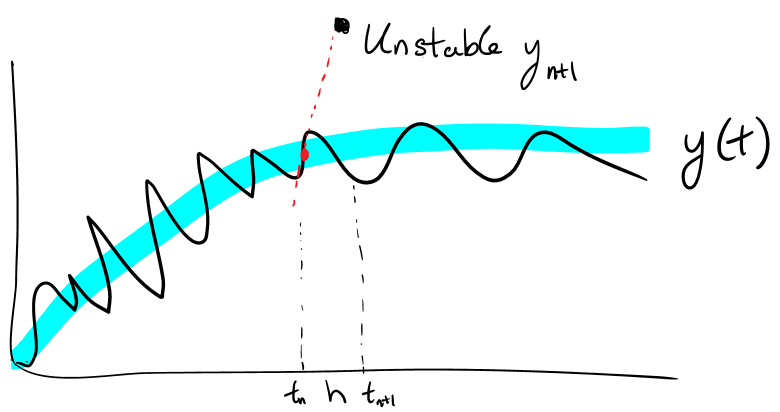 Unstable y_{n+1}
y(t)
t_n h t_{n+1}